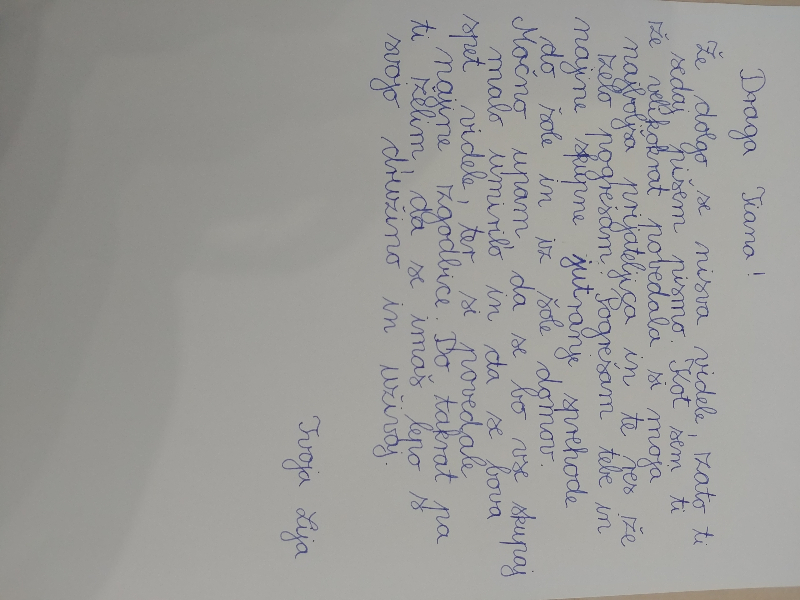 Draga Tiana!
Že dolgo se nisva videle, zato ti
sedaj pišem pismo. Kot sem ti
že velikokrat povedala si moja
najboljša prijateljica in te jes že
zelo pogrešam. Pogrešam tebe in
najine skupne jutranje sprehode
do šole in iz šole domov.
Močno upam da se bo vse skupaj
malo umirilo in da se bova
spet videle, ter si povedale
najine izgodbice. Do takrat pa
ti želim da se imaš lepo s
svojo družino in uživaj.
Tvoja Lija